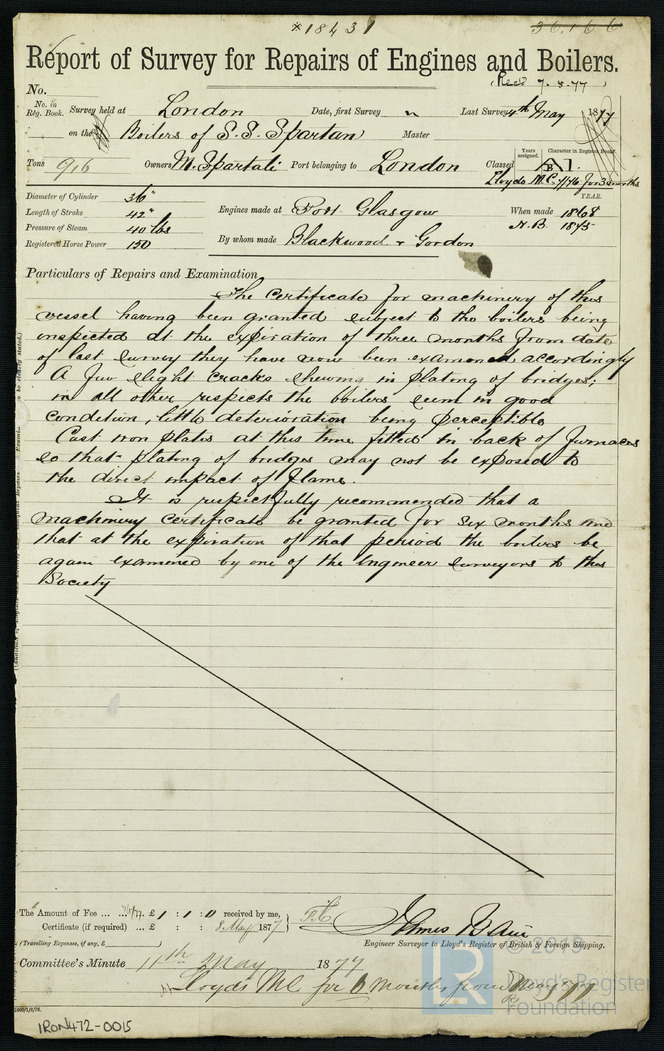 *18431
36,166
Report of Survey for Repairs of Engines and Boilers.
(Recd 7.5.77)
No.
No. in Reg. Book. Survey held at London Date, first Survey Last Survey 4th May 1877
on the Boilers of S.S. Spartan Master
Years assigned. Character in Register Book.
Tons 916 Owners M. Spartali Port belonging to London Classed A1.
Lloyds M.C. 7/76 for 3 months
YEAR.
Diameter of Cylinder 36"
Length of Stroke 42"
Pressure of Steam 40 lbs
Registered Horse Power 150
Engines made at Port Glasgow When made 1868
N.B. 1875
By whom made Blackwood & Gordon
Particulars of Repairs and Examination
The certificate for machinery of this
vessel having been granted subject to the boilers being
inspected at the expiration of three months from date
of last survey they have now been examined accordingly
A few slight cracks shewing in plating of bridges;
in all other respects the boilers seem in good
condition, little deterioration being perceptible
Cast iron plates at this time fitted in back of furnaces
so that plating of bridges may not be exposed to
the direct impact of flame.
It is respectfully recommended that a
machinery certificate be granted for six months and
that at the expiration of that period the boilers be
again examined by one of the Engineer Surveyors to this
Society
The Amount of Fee ... £ 1 : 1 : 0 received by me,
Certificate (if required) ... £ : : 8 May 1877
(Travelling Expenses, if any, £ )
James Bain
Engineer Surveyor to Lloyd's Register of British & Foreign Shipping.
Committee's Minute 11th May 1877
Lloyds MC for 6 Months from May 77
LR
© 2019
Lloyd's Register
Foundation
IRON472-0015